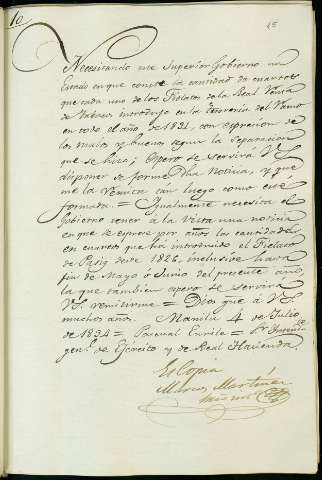 10.
15
Necesitando este Superior Gobierno un
Estado en que conste la cantidad de cuartos
que cada uno de los Fielatos de la Real Renta
de Tabaco introdujo en la Tesorería del Ramo
en todo el año de 1831, con expresion de
los malos y buenos segun la separacion
que se hizo; espero se servirá V.S.
disponer se forme dha noticia, y que
me la remita tan luego como esté
formada = Igualmente necesita el
Gobierno tener á la Vista una noticia
en que se exprese por años las cantidades
en cuartos que há introducido el Fielato
de Pasig desde 1826, inclusive hasta
fin de Mayo ó Junio del presente año,
la que tambien espero se servirá
V.S. remitirme = Dios gue á V.S.
muchos años. Manila 4 de Julio
de 1834 = Pasqual Enrile = Sr Intendte
genl. de Ejército y de Real Hacienda.
Es Copia
Marcos Martinez